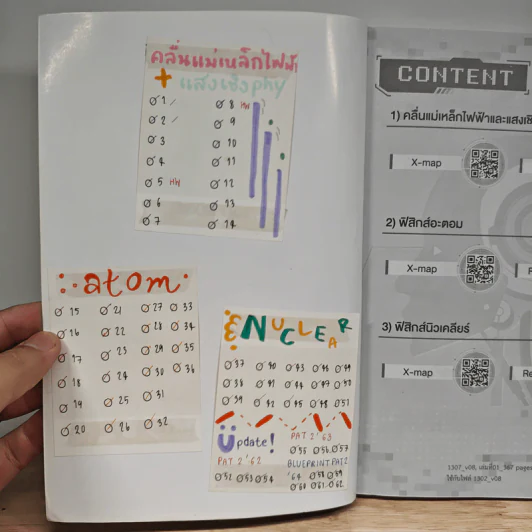 คลื่นแม่เหล็กไฟฟ้า
+ แสงเชิงphy
1 8 HW
2 9
3 10
4 11
5 HW 12
6 13
7 14
atom
15 21 27 33
16 22 28 34
17 23 29 35
18 24 30 36
19 25 31
20 26 32
& NUCLEAR
37 40 43 46 49
38 41 44 47 50
39 42 45 48 51
Update!
PAT 2'63
55 56 57
PAT 2'62
BLUEPRINT PAT2
52 53 54
'64 58 59
60 61 62
CONTENT
1) คลื่นแม่เหล็กไฟฟ้าและแสงเชิ
X-map
2) ฟิสิกส์อะตอม
X-map
3) ฟิสิกส์นิวเคลียร์
X-map
Re